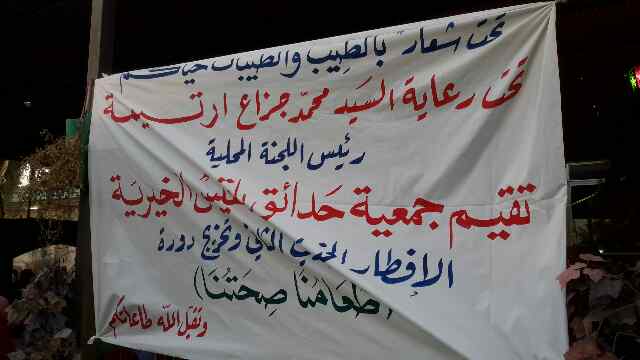 تحت شعار "بالطيب والطيبات حياتكم
تحت رعاية السيد محمد جزاع ارتيمة
رئيس اللجنة المحلية
تقيم جمعية حدائق بلقيس الخيرية
الإفطار الخيري الثاني وتخريج دورة
(طعامُنا صِحتُنا)
وتقبل الله طاعاتكم